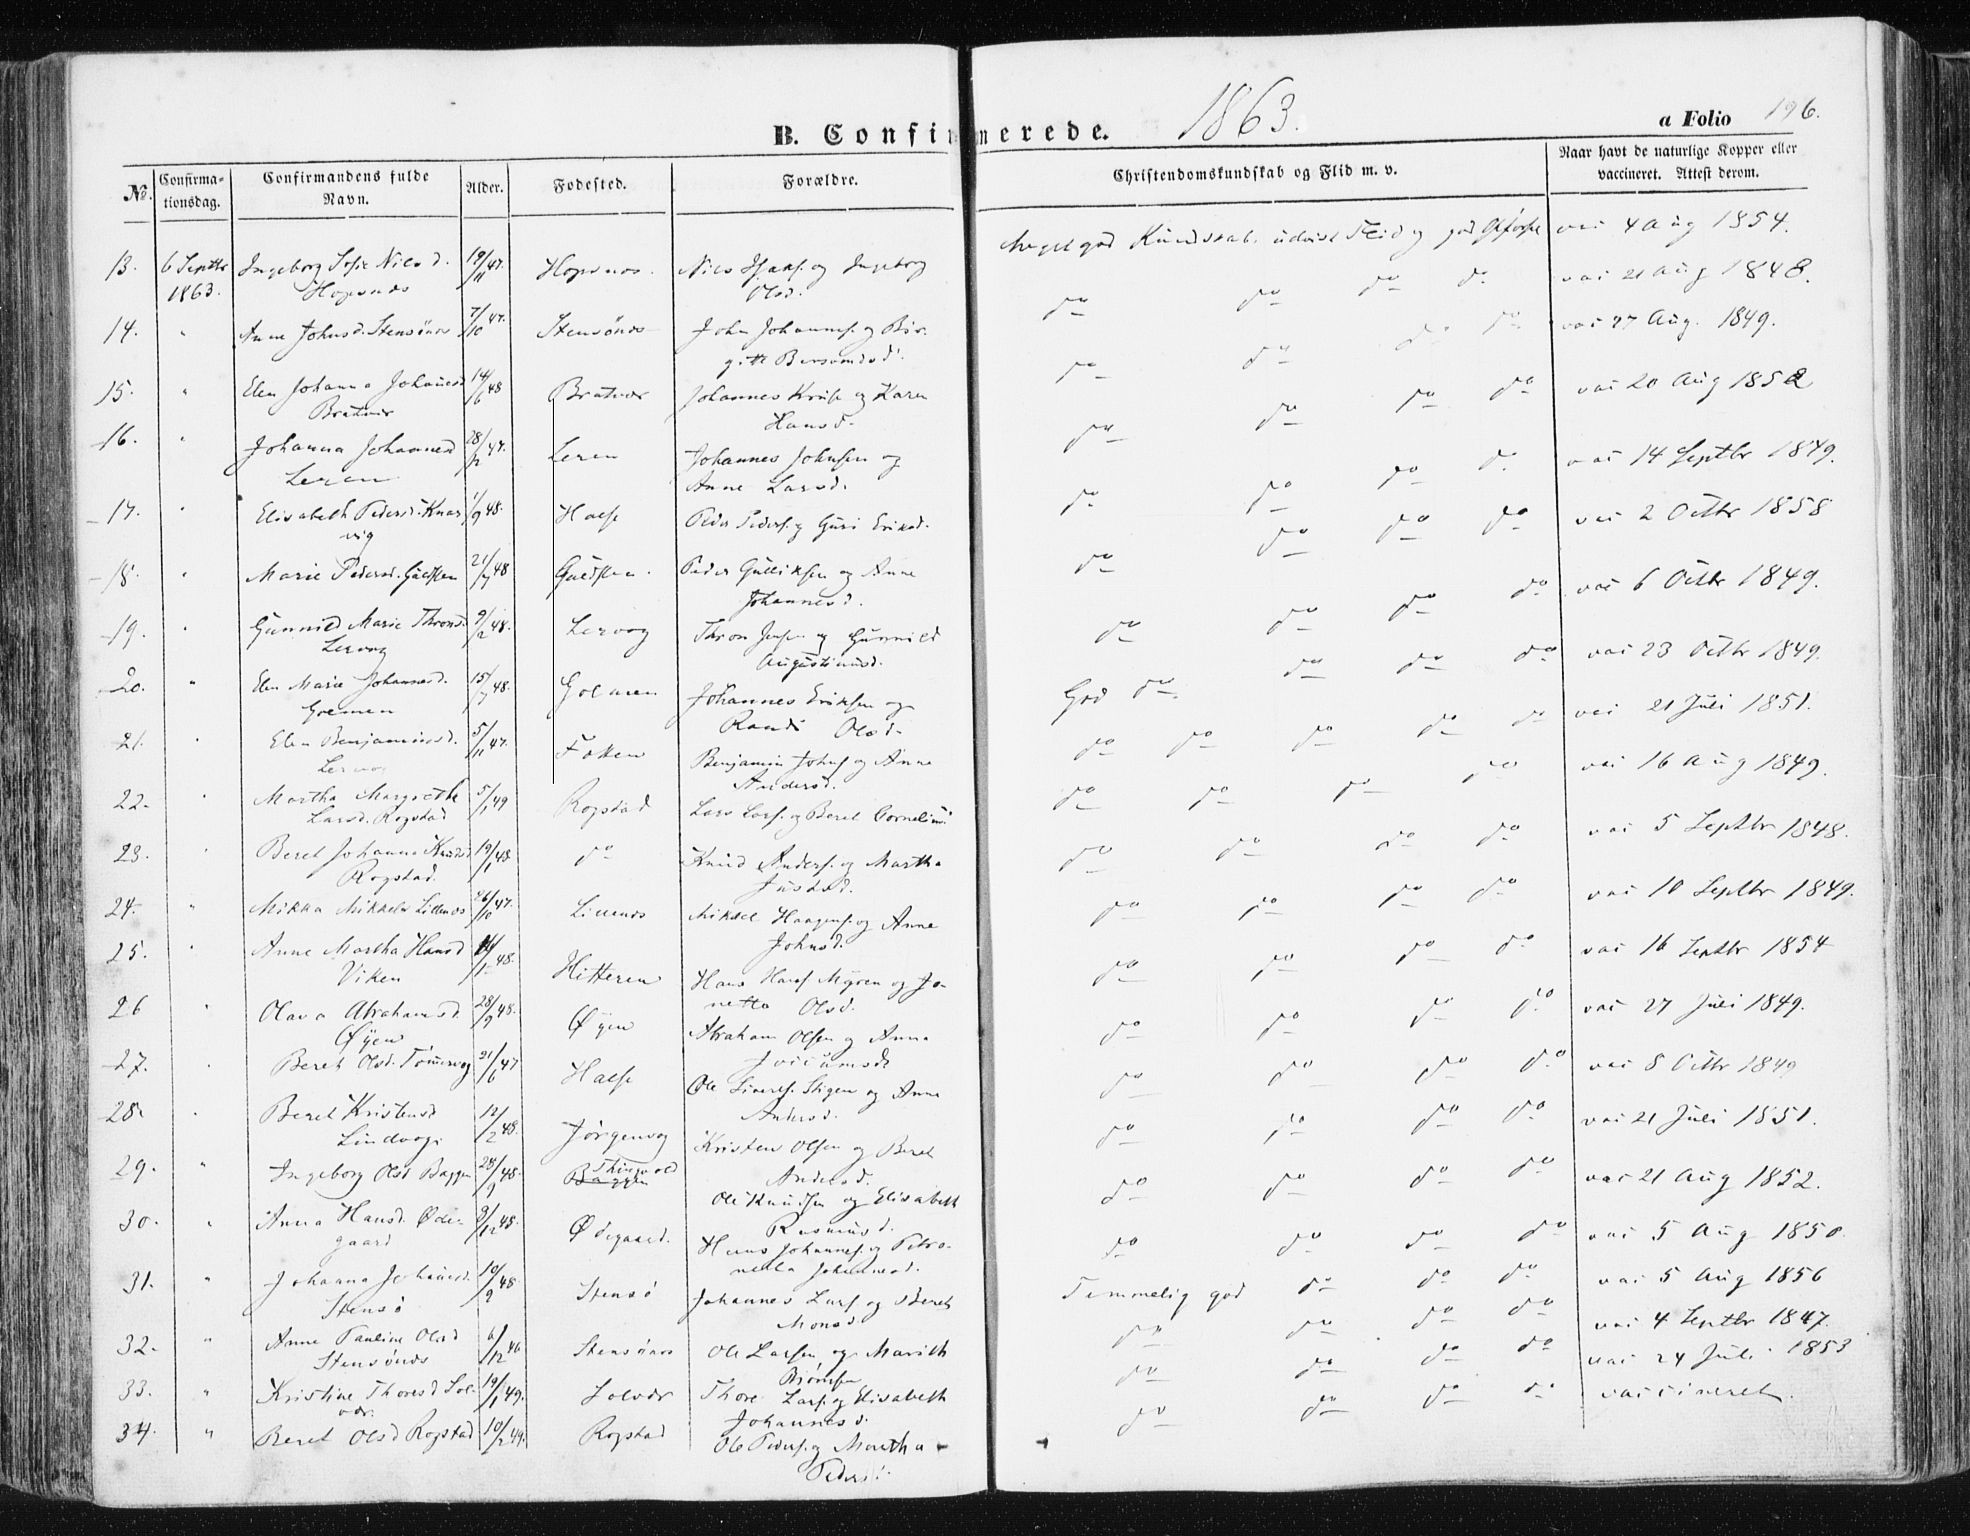 B. Confirmerede. 1863.
a Folio 196.
No. Confirmationsdag. Confirmandens fulde Navn. Alder. Fødested. Forældre. Christendomskundskab og Flid m. v. Naar havt de naturlige Kopper eller vaccineret. Attest derom.
13. 6 Septbr 1863. Ingeborg Sofie Nilsd. Hopsnes 19/11 47. Hopsnes. Nils Isaks. og Ingeborg Olsd. Meget god Kundskab, udvist Flid og god vac 4 Aug 1854.
14. " Anne Johnsd. Stensønes 7/10 47. Stensønes John Johannes. og Bir- gitte do do do do vac 21 Aug 1848.
15. " Elen Johanna Johanesd Bratvær 14/6 48 Bratvær Johannes Krist. og Karen Hansd. do do do do vac 27 Aug. 1849.
16. " Johanna Johannesd Leren 28/12 47. Leren Johannes Johnsen og Anne Larsd. do do do do vac 20 Aug 1852
17. " Elisabeth Pedersd. Knar vig 1/9 48. Halse Peder Peders. og Guri Eriksd. do do do do vac 14 Septbr 1849.
18. " Marie Pedersd. 21/7 48 Peder Gulliksen og Anne Johannesd. do do do do vac 2 Octbr 1858
19. " Gunnild Marie Thronsd. Lervog 9/2 48. Lervog Thron Jens. og Gunnild Augustinusd. do do do do vac 6 Octbr 1849.
20. " Elen Marie Johannesd. Golmen 15/7 48. Golmen Johannes Eriksen og Randi Olsd. God do do do do vac 23 Octbr 1849.
21. " Elen Benjaminsd. Lervog 5/11 47. Foken Benjamin Johns. og Anne Andersd. do do do do do vac 21 Juli 1851.
22. " Martha Margrethe Larsd. Rogstad 5/1 49 Rogstad Lars Lars. og Beret Cornelius. do do do do vac 16 Aug 1849.
23. " Beret Johanna Knudsd Rogstad. 19/1 48 do Knud Anders. og Martha Justsd. do do do do vac 5 Septbr 1848.
24. " Mikka Mikkelsd Lillenes 26/10 47. Lillenes Mikkel Haagens. og Anne Johnsd. do do do do vac 10 Septbr 1849.
25. " Anne Martha Hansd Viken 48. Hitteren Hans Hans. Myren og Jo- netta Olsd. do do do do vac 16 Septbr 1854
26 " Olava Abrahamsd. Øyen 28/9 48. Øyen Abraham Olsen og Anna do do do do vac 27 Juli 1849.
27. " Beret Olsd. Tømmervog 21/6 47 Halse Ole Siverts. Stigen og Anne Andersd. do do do do vac 8 Octbr 1849
28. " Beret Kristensd Lindvog. 12/2 48. Jørgenvog Kristen Olsen og Beret Andersd. do do do do vac 21 Juli 1851.
29. " Ingeborg Olsd Baggen 28/9 48. Thingvold Baggen Ole Knudsen og Elisabeth Rasmusd. do do do do vac 21 Aug 1852.
30. " Anna Hansd. Øde- gaard 9/12 48. Ødegaard. Hans Johannes. og Petro- nella Johannesd. do do do do vac 5 Aug 1850.
31. " Johanna Johanesd. Stensø 10/2 48. Stensø Johannes Lars. og Beret Monsd Temmelig god do do do vac 5 Aug 1856
32. " Anne Pauline Olsd Stensønes 6/12 46 Stensønes Ole Larsen og Marith do do do do vac 4 Septbr 1847.
33. " Kristine Thoresd Sol- vær. 19/1 49. Solvær Thore Lars. og Elisabeth Johannesd. do do do do vac 24 Juli 1853
34. " Beret Olsd Rogstad 10/2 49. Rogstad Ole Peders. og Maretha Pedersd. do do do do vaccineret.